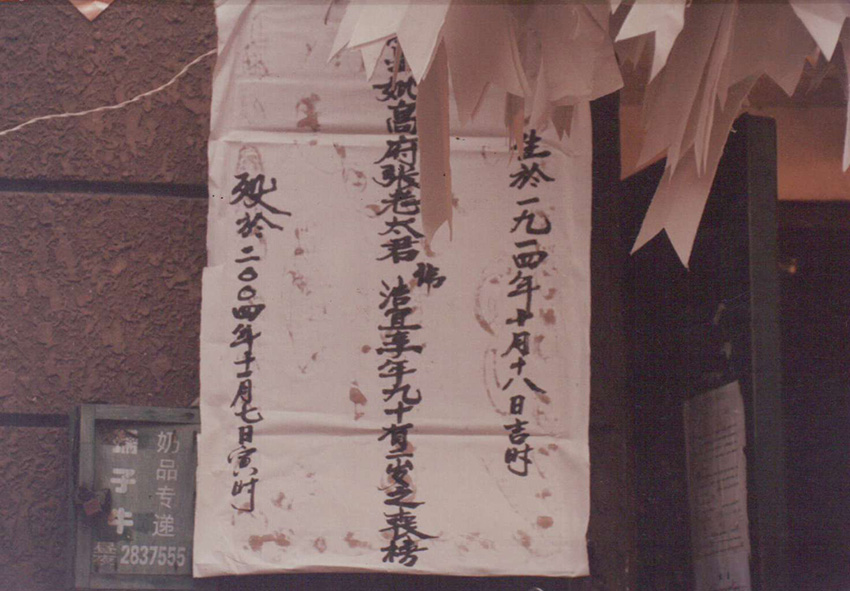 生於一九一四年十月十八日吉时
妣高府張老太君諱洁宜享年九十有二岁之喪榜
殁於二〇〇四年十一月七日寅时
奶品专递
子牛
2837555